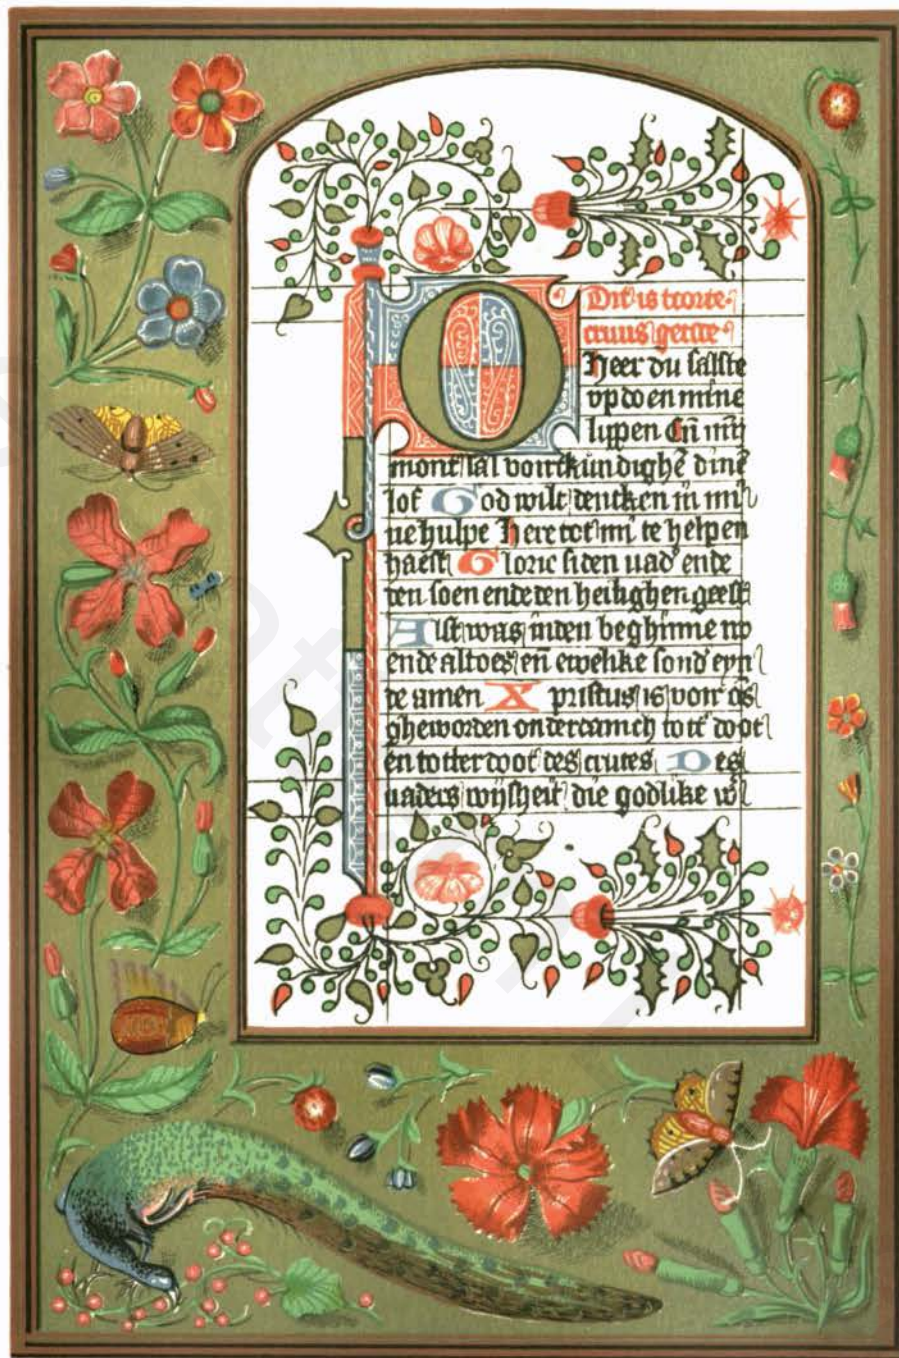 Dit is tcorte
cruus getide
Heer du salste
op doen mine
lippen En mŷ
mont sal voirtkundighē dinē
lof God wilt dencken in mi
ne hulpe Here tot mi te helpen
haest Glorie si den vad' ende
den soen ende den heilighen geest
Alst was inden beghinne nv
ende altoes en̄ ewelike sond' eyn
de amen Xpristus is voir ōs
gheworden onderdanich totē doot
en̄ totter doot des cruces Des
vaders wijsheit die godlike w